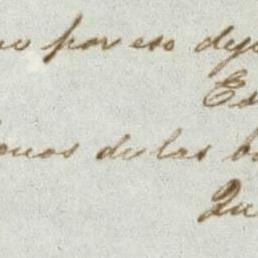 por eso dej
Es
de las ba
Qu